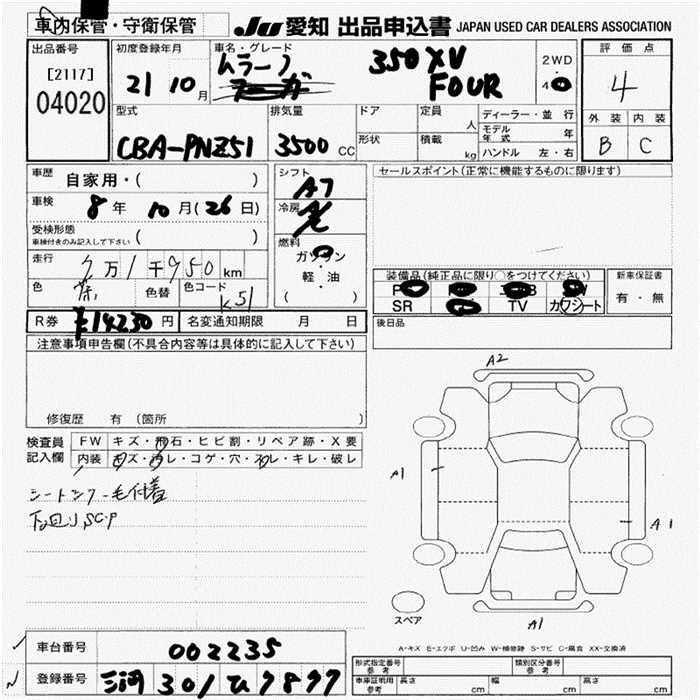 車内保管・守衛保管
JU 愛知 出品申込書 JAPAN USED CAR DEALERS ASSOCIATION
出品番号
[2117]
04020
初度登録年月
21 10月
車名・グレード
ムラーノ
350XV
FOUR
2WD
4
評価点
4
外装 内装
B C
型式
CBA-PNZ51
排気量
3500 CC
ドア
形状
定員
人
積載
kg
ディーラー・並行
モデル年式 年
ハンドル 左・右
車歴
自家用・( )
車検
8年 10月(26日)
受検形態
車検付きのみ記入して下さい ( )
走行
7万1千950km
色
茶
色替
色コード
K51
シフト
A7
冷房
燃料
ガソリン
軽・油
( )
セールスポイント(正常に機能するものに限ります)
装備品(純正品に限り○をつけてください)
SR TV カワシート
新車保証書
有・無
後日品
R券 ¥14230円 名変通知期限 月 日
注意事項申告欄(不具合内容等は具体的に記入して下さい)
修復歴 有 (箇所 )
検査員記入欄
FW キズ・飛石・ヒビ割・リペア跡・X要
内装 キズ・汚レ・コゲ・穴・スレ・キレ・破レ
下回りSCP
A2
A1
A1
A1
スペア
A-キズ E-エクボ U-凹み W-補修跡 S-サビ C-腐食 XX-交換済
車台番号
002235
登録番号
301 ひ 7877
形式指定番号
参考
類別区分番号
参考
車庫証明用
参考
長さ cm 幅 cm 高さ cm